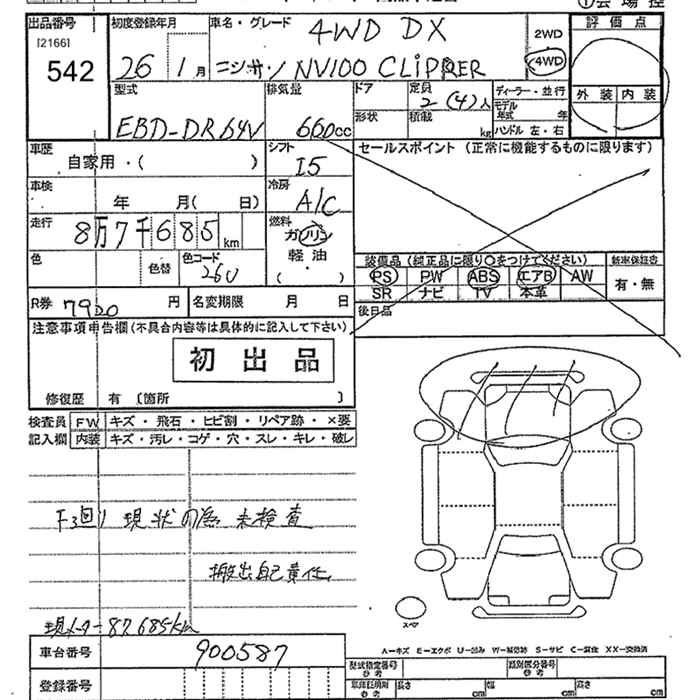 ①会場控
出品番号
[21661]
542
初度登録年月
26 1月
車名・グレード
4WD DX
ニッサン NV100 CLIPPER
2WD
4WD
評価点
外装 内装
型式
EBD-DR64V
排気量
660cc
ドア
形状
定員
2(4)人
積載
kg
ディーラー・並行
モデル年式 年
ハンドル 左・右
車歴
自家用・( )
シフト
I5
セールスポイント (正常に機能するものに限ります)
車検
年 月( 日)
冷房
A/C
走行
8万7千685km
燃料
ガソリン
軽油
( )
色
色替
色コード
26U
装備品(純正品に限り○をつけてください)
PS PW ABS エアB AW
SR ナビ TV 本革
新車保証書
有・無
R券 7920円
名変期限 月 日
後日品
注意事項申告欄(不具合内容等は具体的に記入して下さい)
初出品
修復歴 有 〔箇所 〕
検査員記入欄
FW キズ・飛石・ヒビ割・リペア跡・×要
内装 キズ・汚レ・コゲ・穴・スレ・キレ・破レ
現状の為 未検査
搬出自己責任
現メーター87,685km
スペア
A-キズ E-エクボ U-凹み W-補修跡 S-サビ C-腐食 XX-交換済
車台番号
900587
登録番号
型式指定番号
参考
類別区分番号
参考
車体証明別
参考
長さ cm 幅 cm 高さ cm